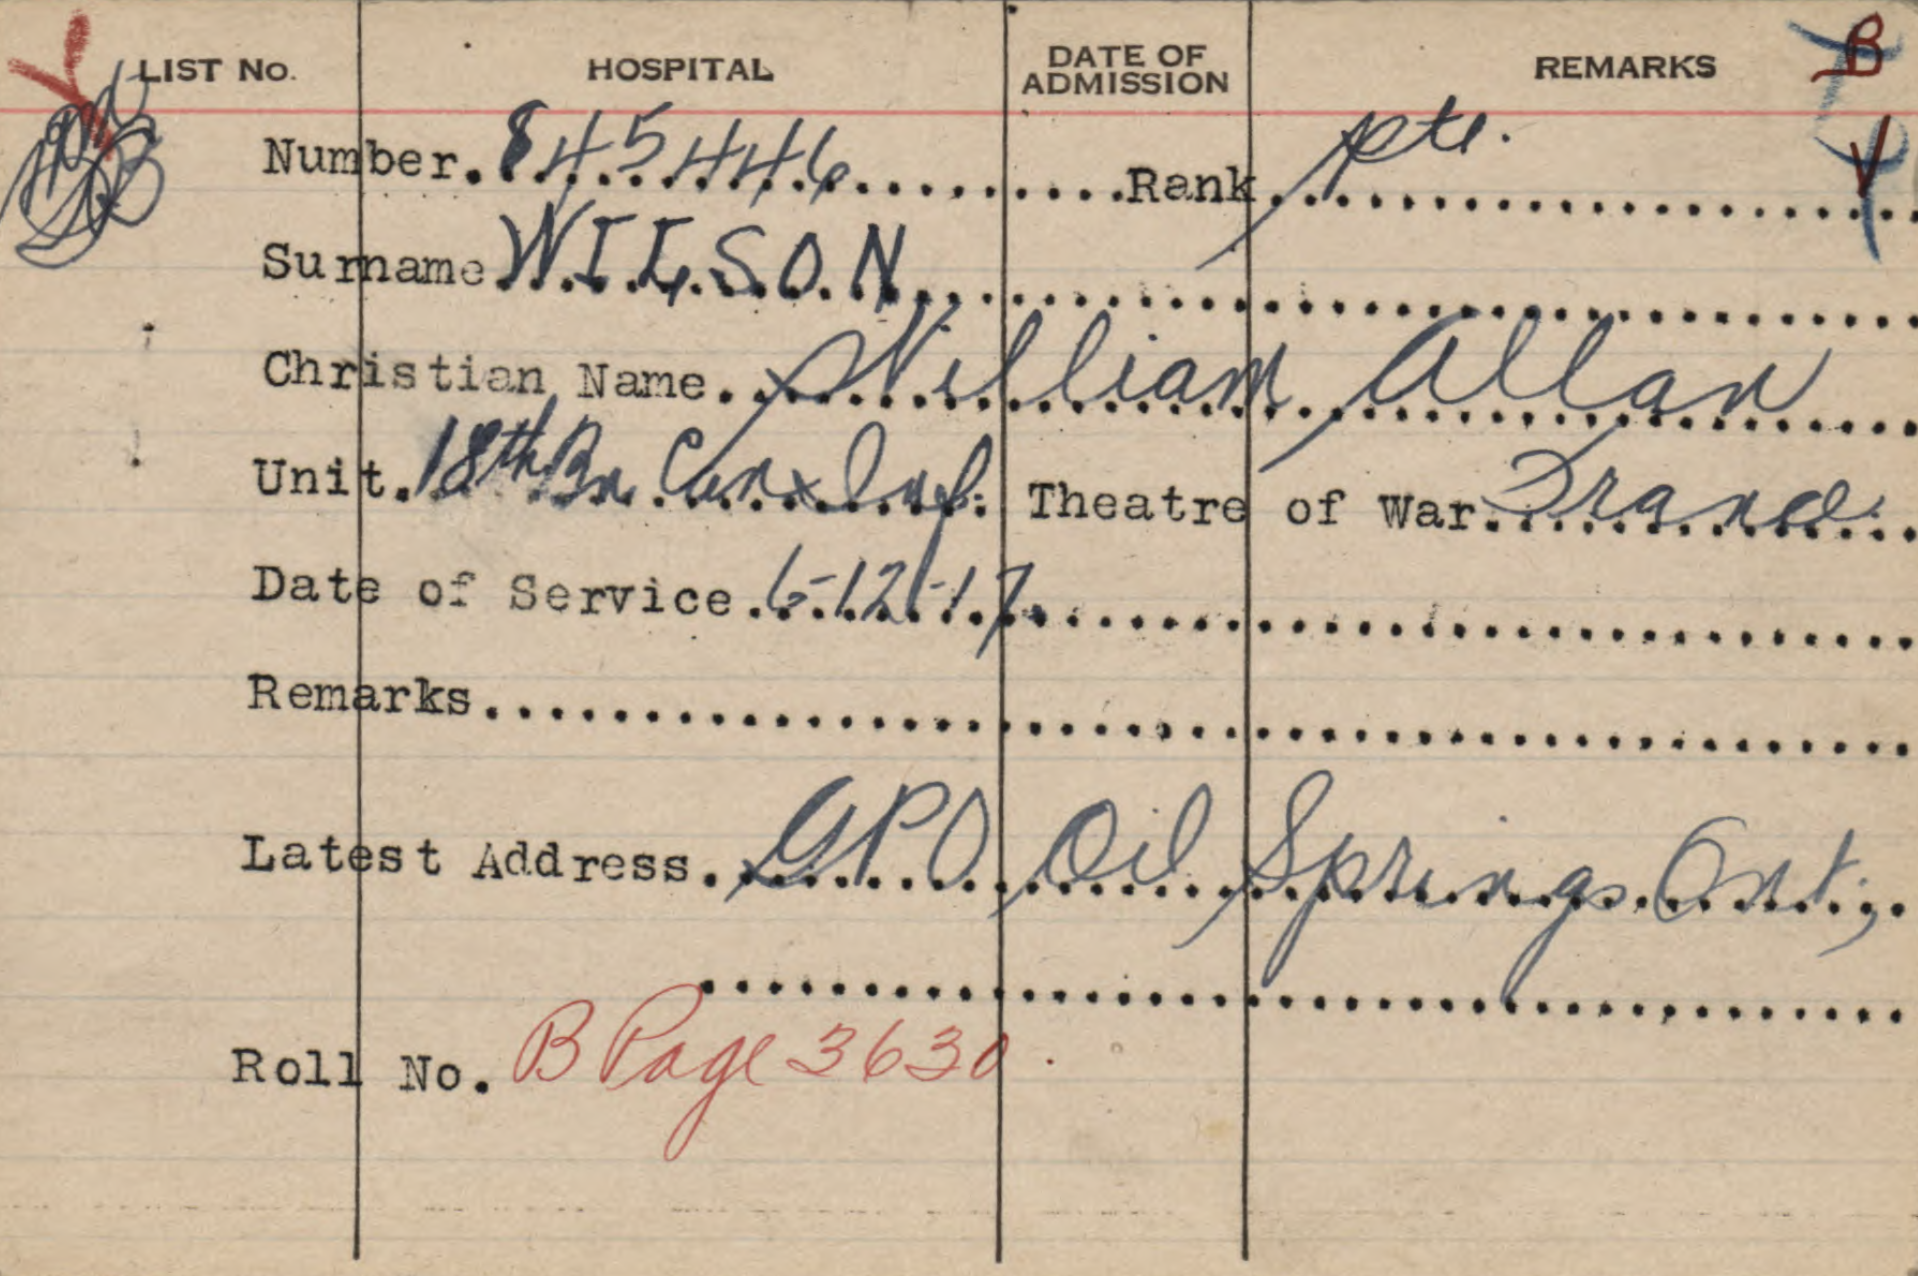 LIST No. HOSPITAL DATE OF ADMISSION REMARKS B
V
Number. 845446 Rank pte.
Surname WILSON
Christian Name. William Allan
Unit. 18th Bn Can Inf. Theatre of War. France
Date of Service. 6-12-17
Remarks
Latest Address. GPO Oil Springs Ont,
Roll No. B Page 3630.